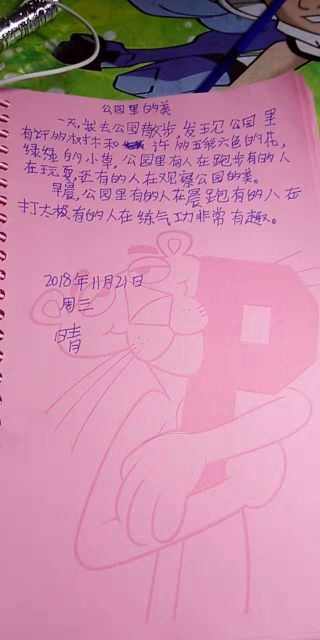 公园里的美
一天,我去公园散步,发现公园里
有许多的树木和许多五颜六色的花,
绿绿的小草,公园里有人在跑步有的人
在玩耍,还有的人在观察公园的美。
早晨,公园里有的人在晨跑有的人在
打太极有的人在练气功非常有趣。
2018年11月21日
周三
晴